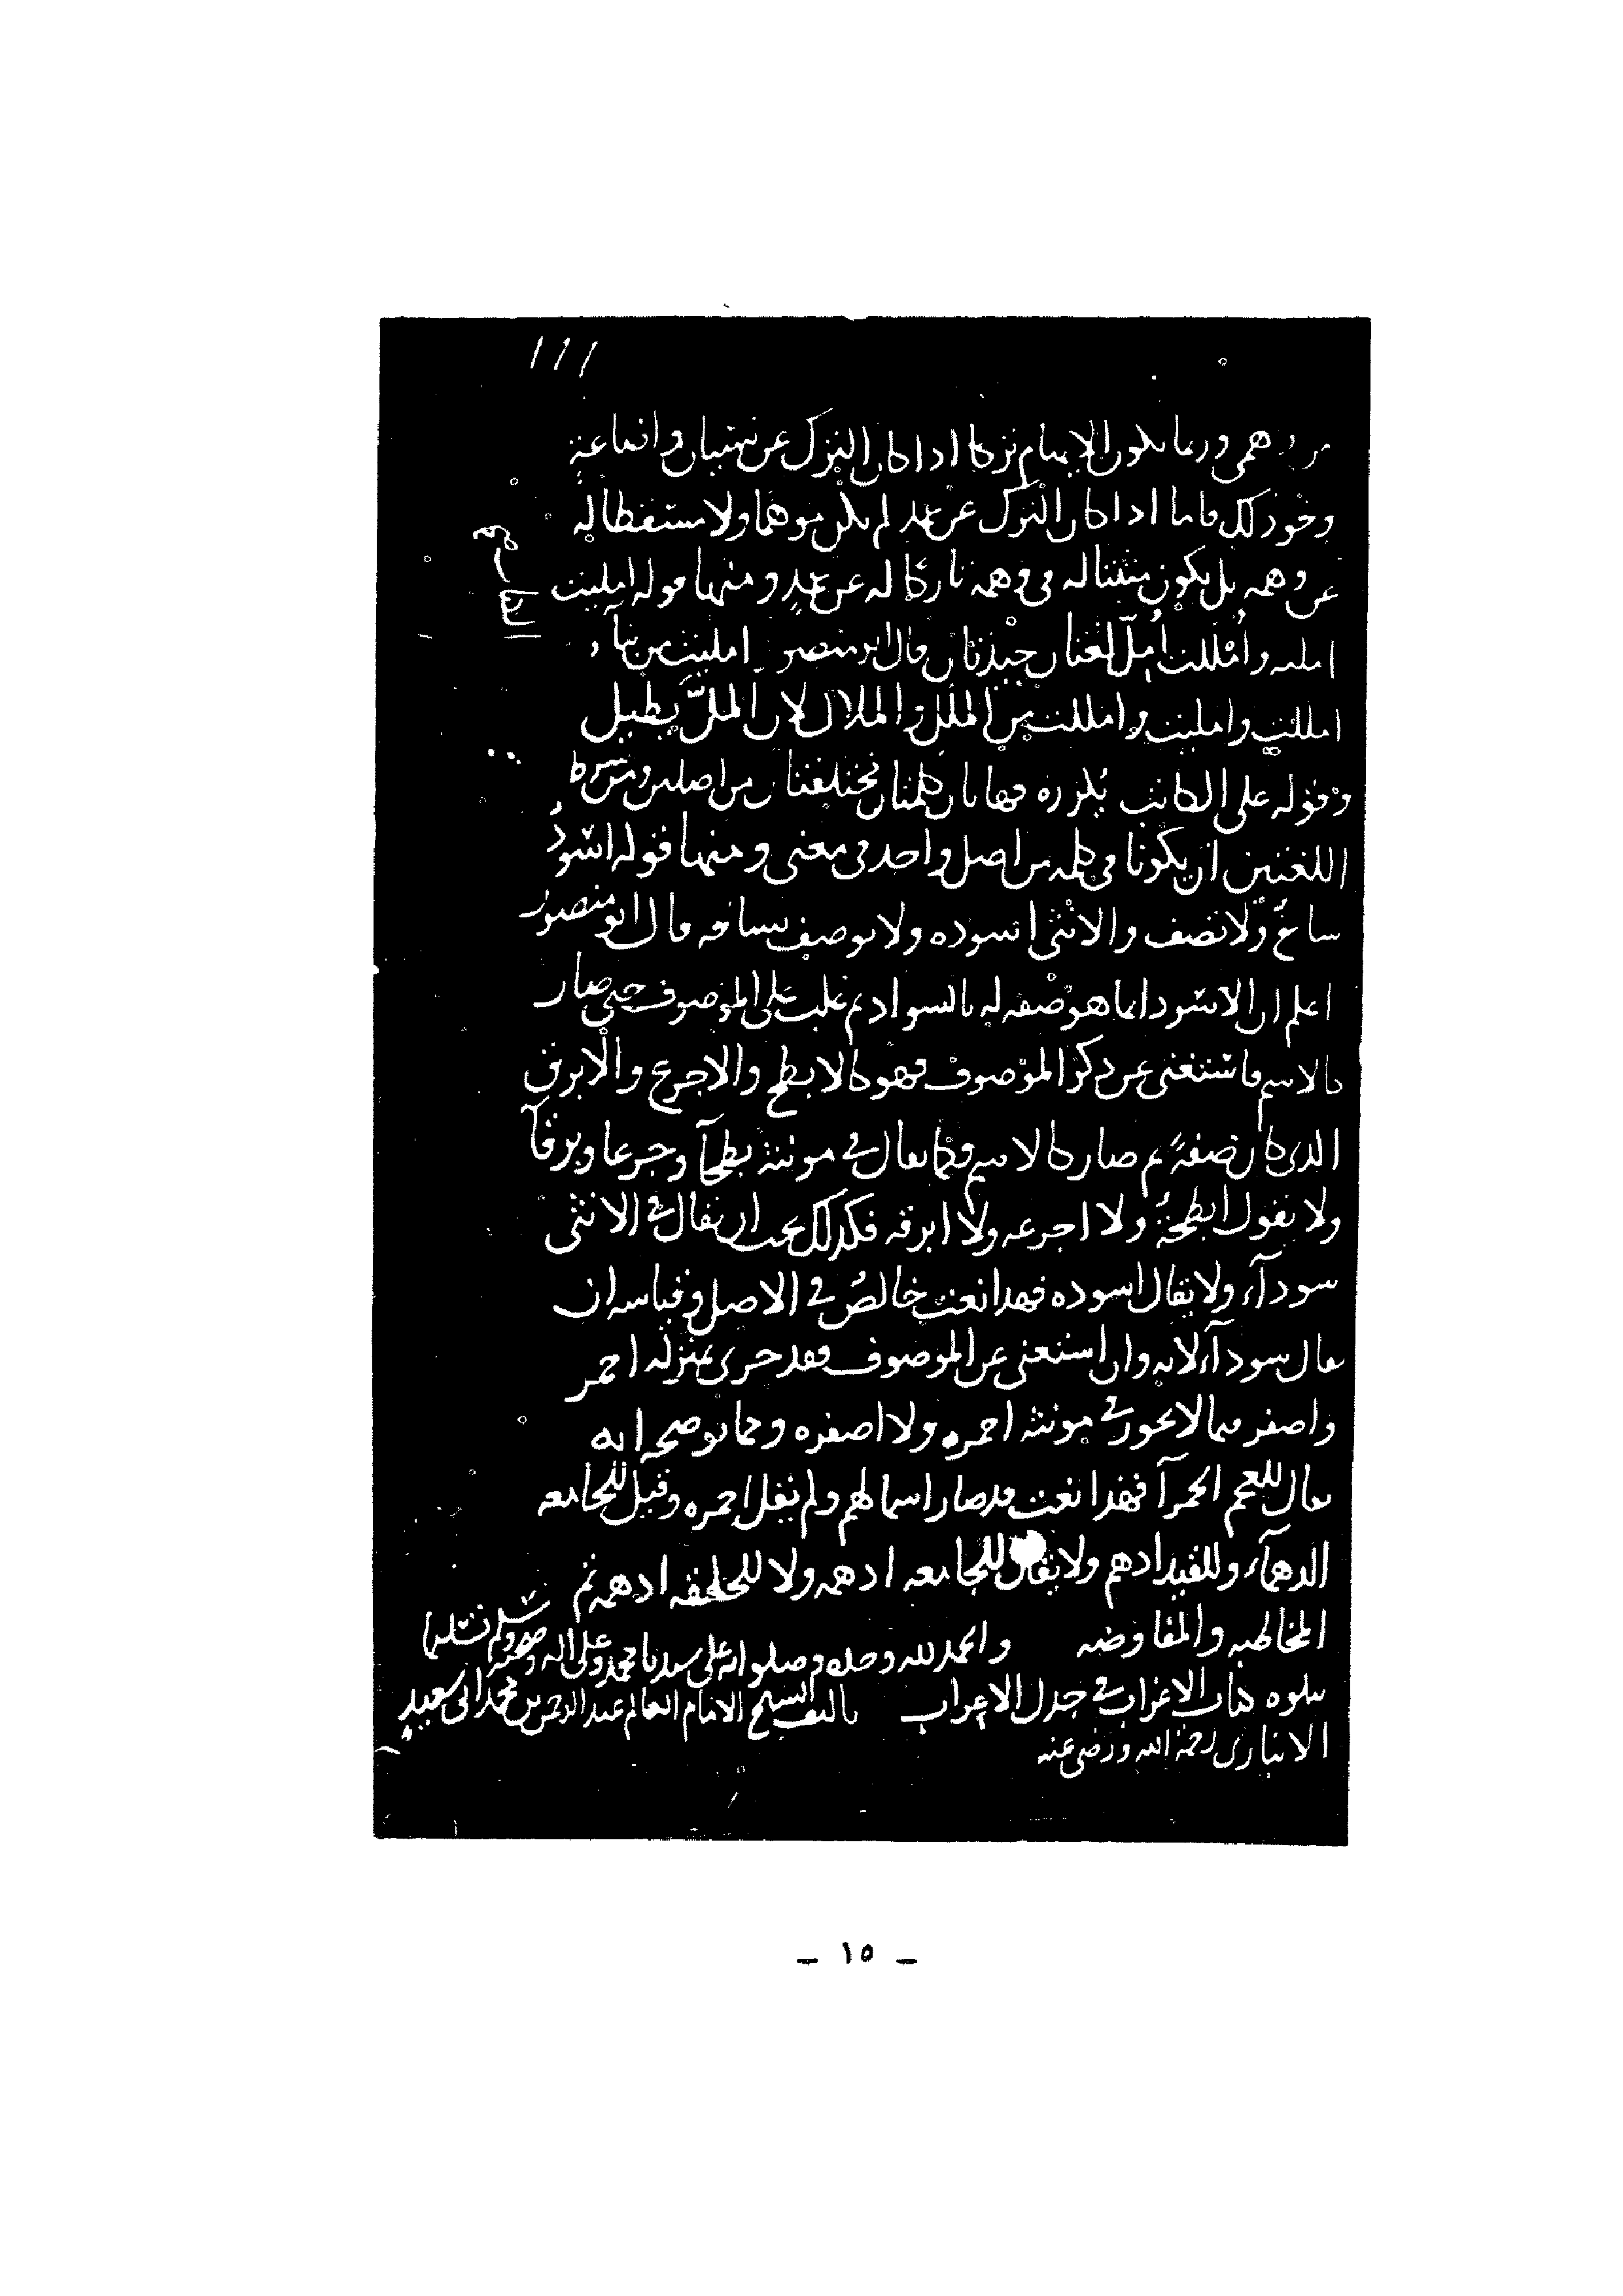 ١١١
وهمى وربما يكون الايهام تركا اذا كان الترك عن نسيان
ونحو ذلك فاما اذا كان الترك عن عمد لم يكن موهما ولا مسقطا له
عن وهمه بل يكون مثبتا له فى وهمه تاركا له عن عمد ومنها قوله امليت
امليه وامللت امل لغتان جيدتان قال ابو منصر امليت من
امللت وامليت وامللت من الملل والملال لان الممل يطيل
قوله على الكاتب يكرره فهاتان كلمتان مختلفتان من اصلين وشرط
اللغتين ان يكونا فى كلمه من اصل واحد فى معنى ومنها قوله اسود
سالخ ولا تضف والانثى اسوده ولا توصف بسالخه قال ابو منصور
اعلم ان الاسود انما هو صفه له بالسواد ثم غلبت على الموصوف حتى صار
كالاسم فاستغنى عن ذكر الموصوف فهو كالابطح والاجرع والابرق
الذى كان صفة ثم صار كالاسم فكما يقال فى مونثه بطحآ وجرعا وبرقآ
ولا يقول ابطحة ولا اجرعه ولا ابرقه فكذلك يجب ان يقال فى الانثى
سودآء ولا يقال اسوده فهذا نعت خالص فى الاصل وقياسه ان
يقال سودآء لانه وان استغنى عن الموصوف فقد جرى بمنزله احمر
واصفر فيما لا يجوز فى مونثه احمره ولا اصفره ومما يوضحه انه
يقال للعجم الحمرآ فهذا نعت قد صار اسما لهم ولم يقل احمره وقيل للجامعه
الدهمآء وللقيد ادهم ولا يقال للجامعه ادهمه ولا للحلقه ادهمه ثم
المخاطبه والمفاوضه والحمد لله وحده وصلواته على سيدنا محمد وعلى اله وصحبه وسلم تسليما
يتلوه كتاب الاغراب فى جدل الاعراب تاليف الشيخ الامام العالم عبد الرحمن بن محمد ابى سعيد
الانبارى رحمة الله ورضى عنه
– ١٥ –